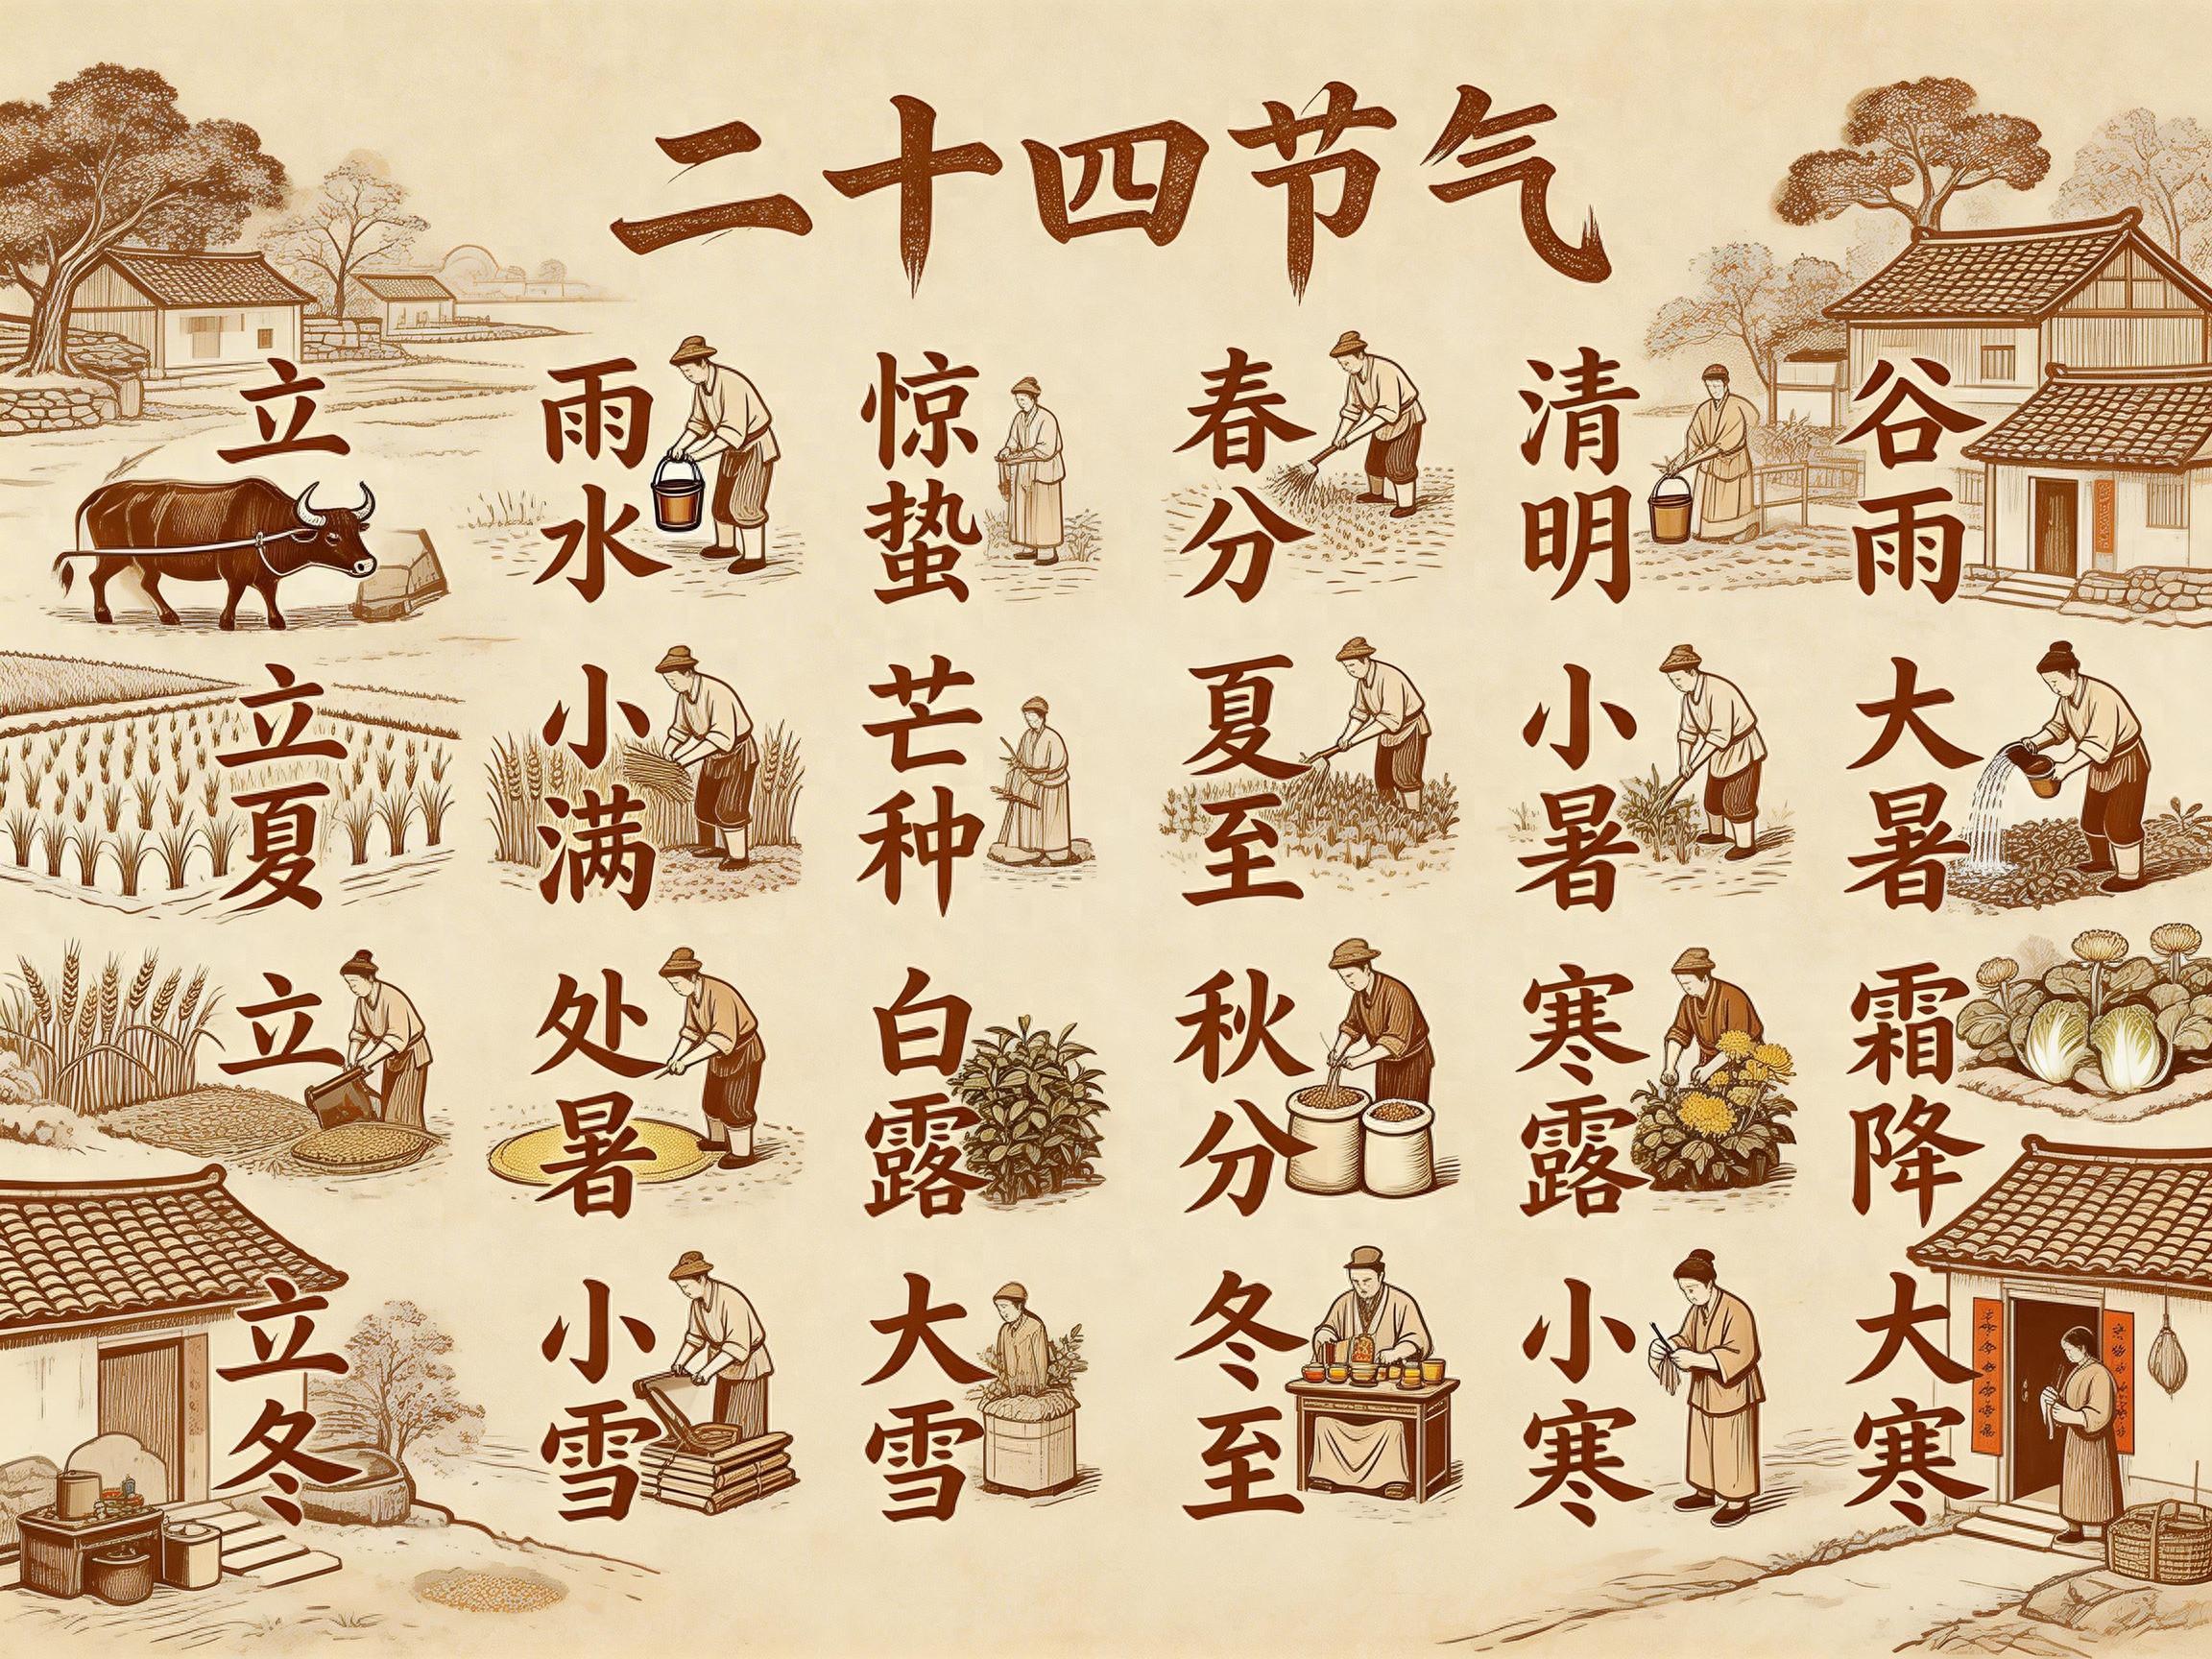 二十四节气
立
雨水
惊蛰
春分
清明
谷雨
立夏
小满
芒种
夏至
小暑
大暑
立
处暑
白露
秋分
寒露
霜降
立冬
小雪
大雪
冬至
小寒
大寒